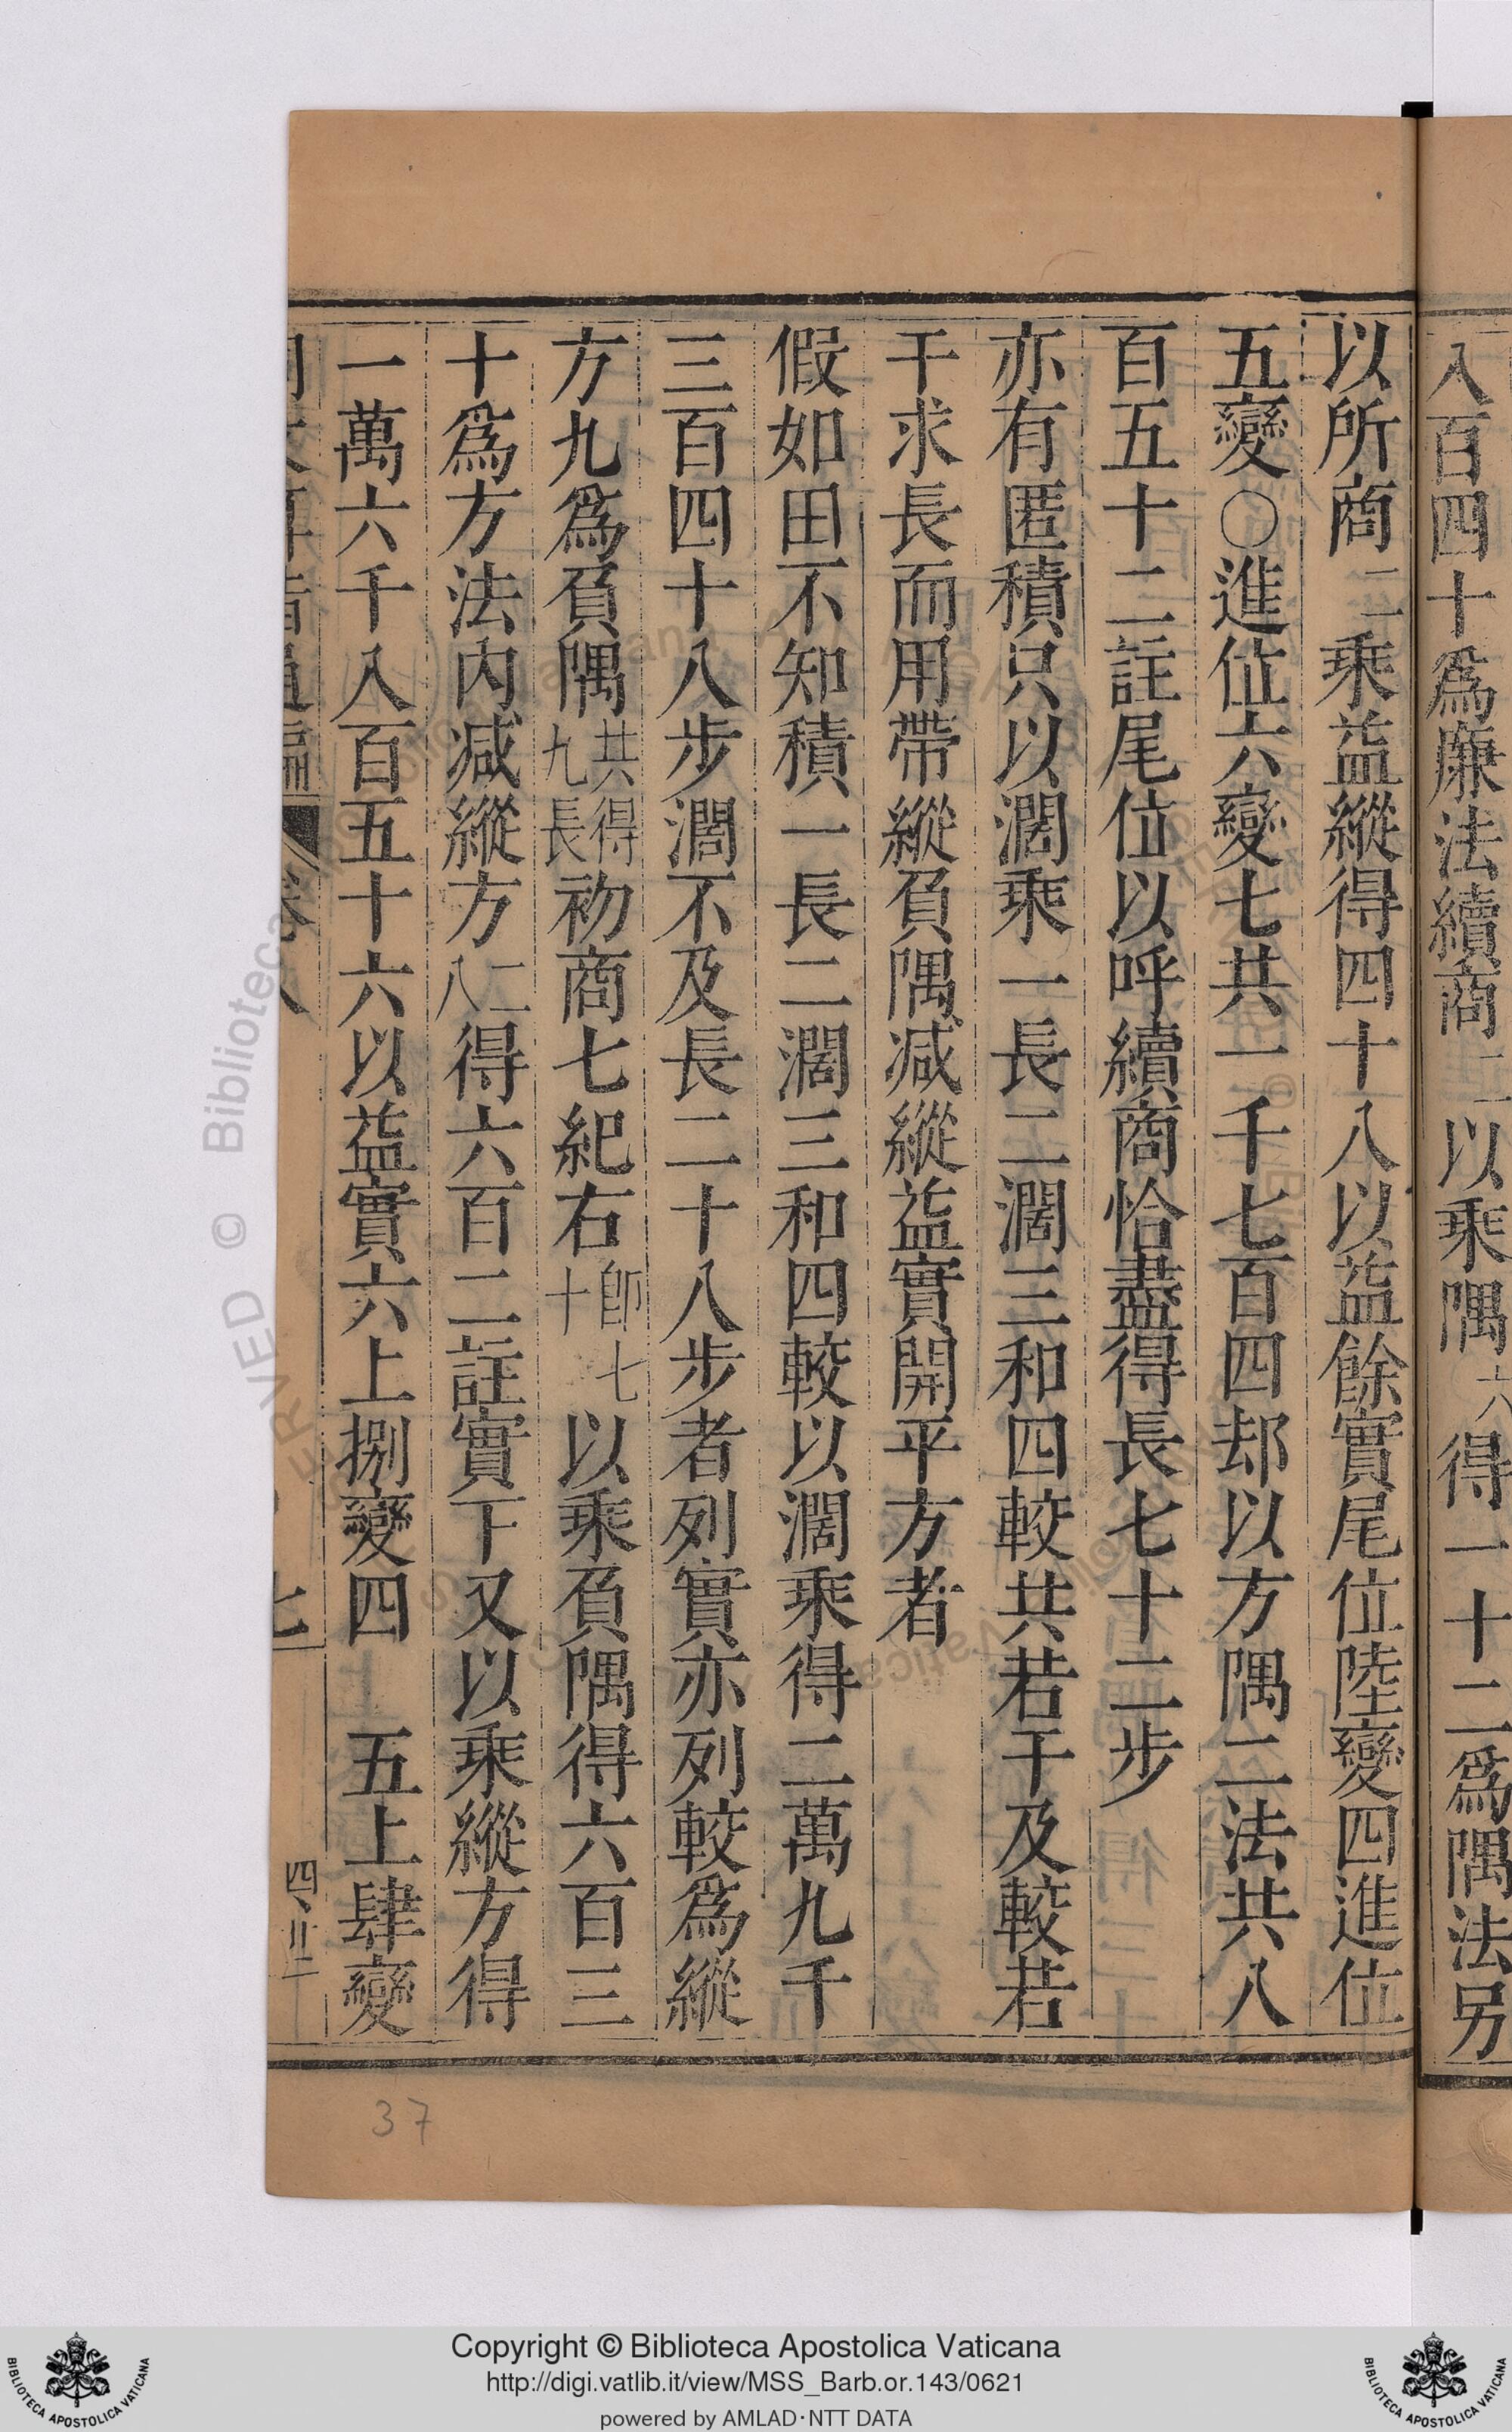 八百四十爲廉法續商二以乘隅六得一十二爲隅法另
以所商二乘益縱得四十八以益餘實尾位陸變四進位
五變〇進位六變七共一千七百四却以方隅二法共八
百五十二註尾位以呼續商恰盡得長七十二步
亦有匿積只以濶乘一長二濶三和四較共若干及較若
干求長而用帶縱負隅减縱益實開平方者
假如田不知積一長二濶三和四較以濶乘得二萬九千
三百四十八步濶不及長二十八步者列實亦列較爲縱
方九爲負隅共得九長初商七紀右卽七十以乘負隅得六百三
十爲方法內减縱方二八得六百二註實下又以乘縱方得
一萬六千八百五十六以益實六上捌變四 五上肆變
卷八
七
四、廿二
37
Copyright © Biblioteca Apostolica Vaticana
http://digi.vatlib.it/view/MSS_Barb.or.143/0621
powered by AMLAD·NTT DATA
BIBLIOTECA APOSTOLICA VATICANA
BIBLIOTECA APOSTOLICA VATICANA